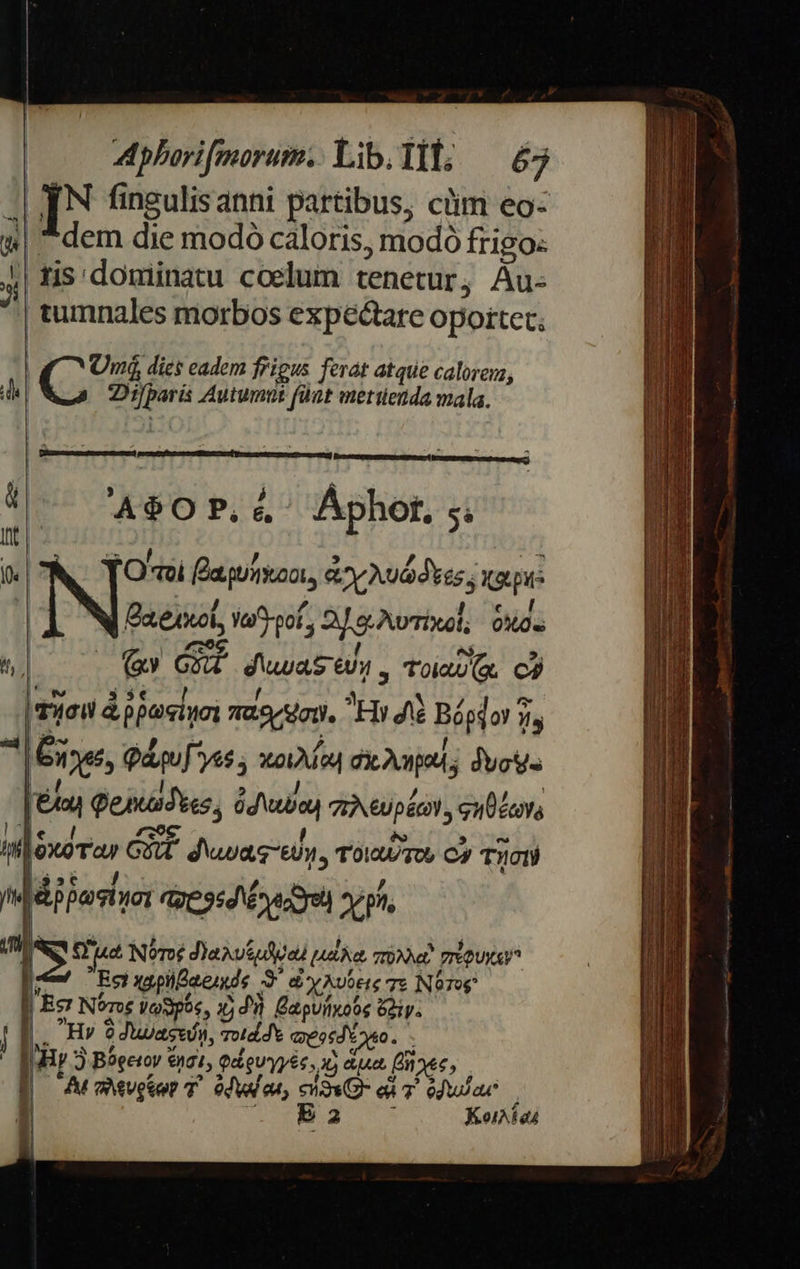 Aphorismorum. Lib. III. 67
IN singulis anni partibus, cùm eo-
dem die modò caloris, modò frigo-
ris dominatu coelum tenetur, Au-
tumnales morbos expectare oportet.
Cùmq; dies eadem frigus ferat atque calorem,
Disparis Autumni sunt metuenda mala.
ἈΦΟΡ. έ. Aphor. 5.
ΝΌτοι βαρυήκοοι, ἀχλυώδεες, καρη-
βαρικοί, νωθροί, διαλυτικοί, ὁκό-
ταν οὗτος δυναστεύῃ, τοιαῦτα ἐν
τῇσιν ἀῤῥωστίῃσι πάσχουσιν. Ἢν δὲ Βόρειον ᾖ,
βῆχες, φάρυγγες, κοιλίαι σκληραί, δυσου-
ρίαι φρικώδεες, ὀδύναι πλευρέων, στηθέων,
ὁκόταν οὗτος δυναστεύῃ, τοιαῦτα ἐν τῇσιν
ἀῤῥωστίῃσι προσδέχεσθαι χρή.
Νότος διαλυέμεναι μάλα πολλὰ πέφυκεν
Ἔστι καρηβαρικός θ' ἀχλυόεις τε Νότος·
Ἔστι Νότος νωθρός, καὶ δὴ βαρυήκοός ἐστιν.
Ἢν ὁ δυναστεύῃ, τοιάδε προσδέχεο.
Ἢν δὲ Βόρειον ἔησι, φάρυγγές, καὶ ἅμα βῆχες,
Αἱ πλευρέων τ' ὀδύναι, στήθεος αἵ τ' ὀδύναι
E 2 Κοιλίαι